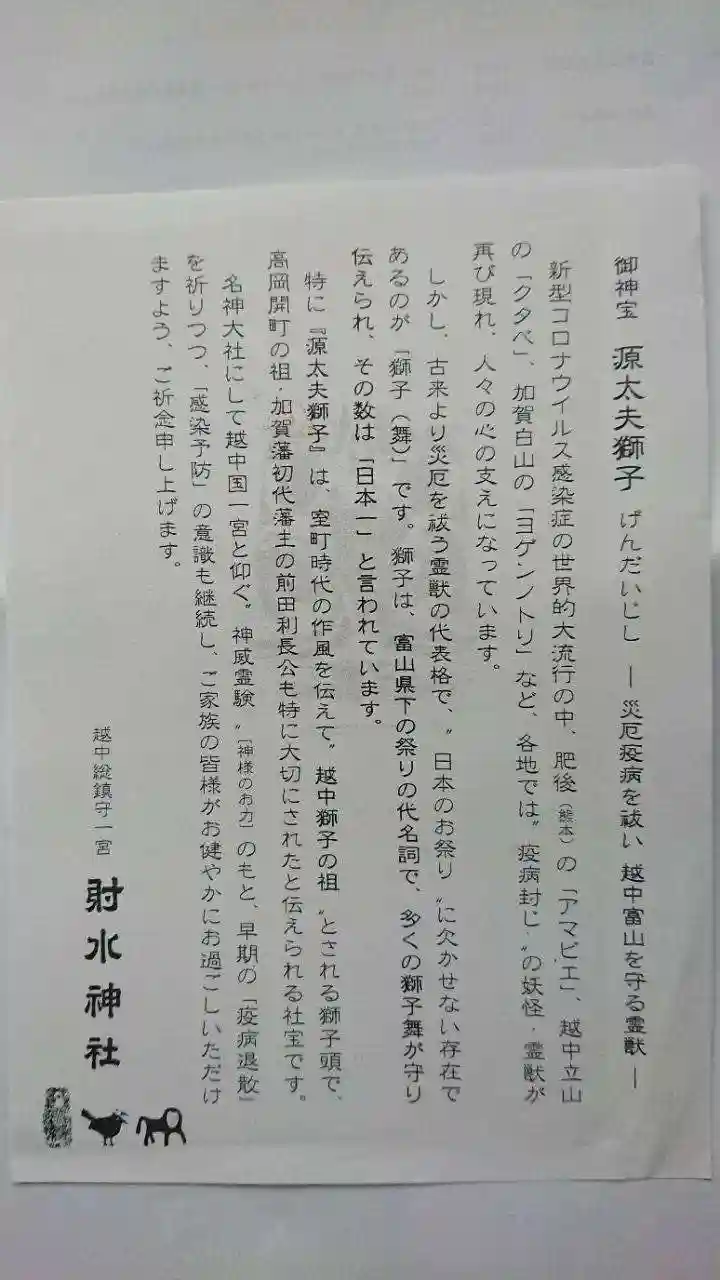 御神宝 源太夫獅子 げんだいじし ―災厄疫病を祓い 越中富山を守る霊獣―
新型コロナウイルス感染症の世界的大流行の中、肥後(熊本)の「アマビエ」、越中立山
の「クタベ」、加賀白山の「ヨゲンノトリ」など、各地では〝疫病封じ〟の妖怪・霊獣が
再び現れ、人々の心の支えになっています。
しかし、古来より災厄を祓う霊獣の代表格で、〝日本のお祭り〟に欠かせない存在で
あるのが「獅子(舞)」です。獅子は、富山県下の祭りの代名詞で、多くの獅子舞が守り
伝えられ、その数は「日本一」と言われています。
特に『源太夫獅子』は、室町時代の作風を伝えて〝越中獅子の祖〟とされる獅子頭で、
高岡開町の祖・加賀藩初代藩主の前田利長公も特に大切にされたと伝えられる社宝です。
名神大社にして越中国一宮と仰ぐ〝神威霊験〟[神様のお力]のもと、早期の「疫病退散」
を祈りつつ、「感染予防」の意識も継続し、ご家族の皆様がお健やかにお過ごしいただけ
ますよう、ご祈念申し上げます。
越中総鎮守一宮 射水神社